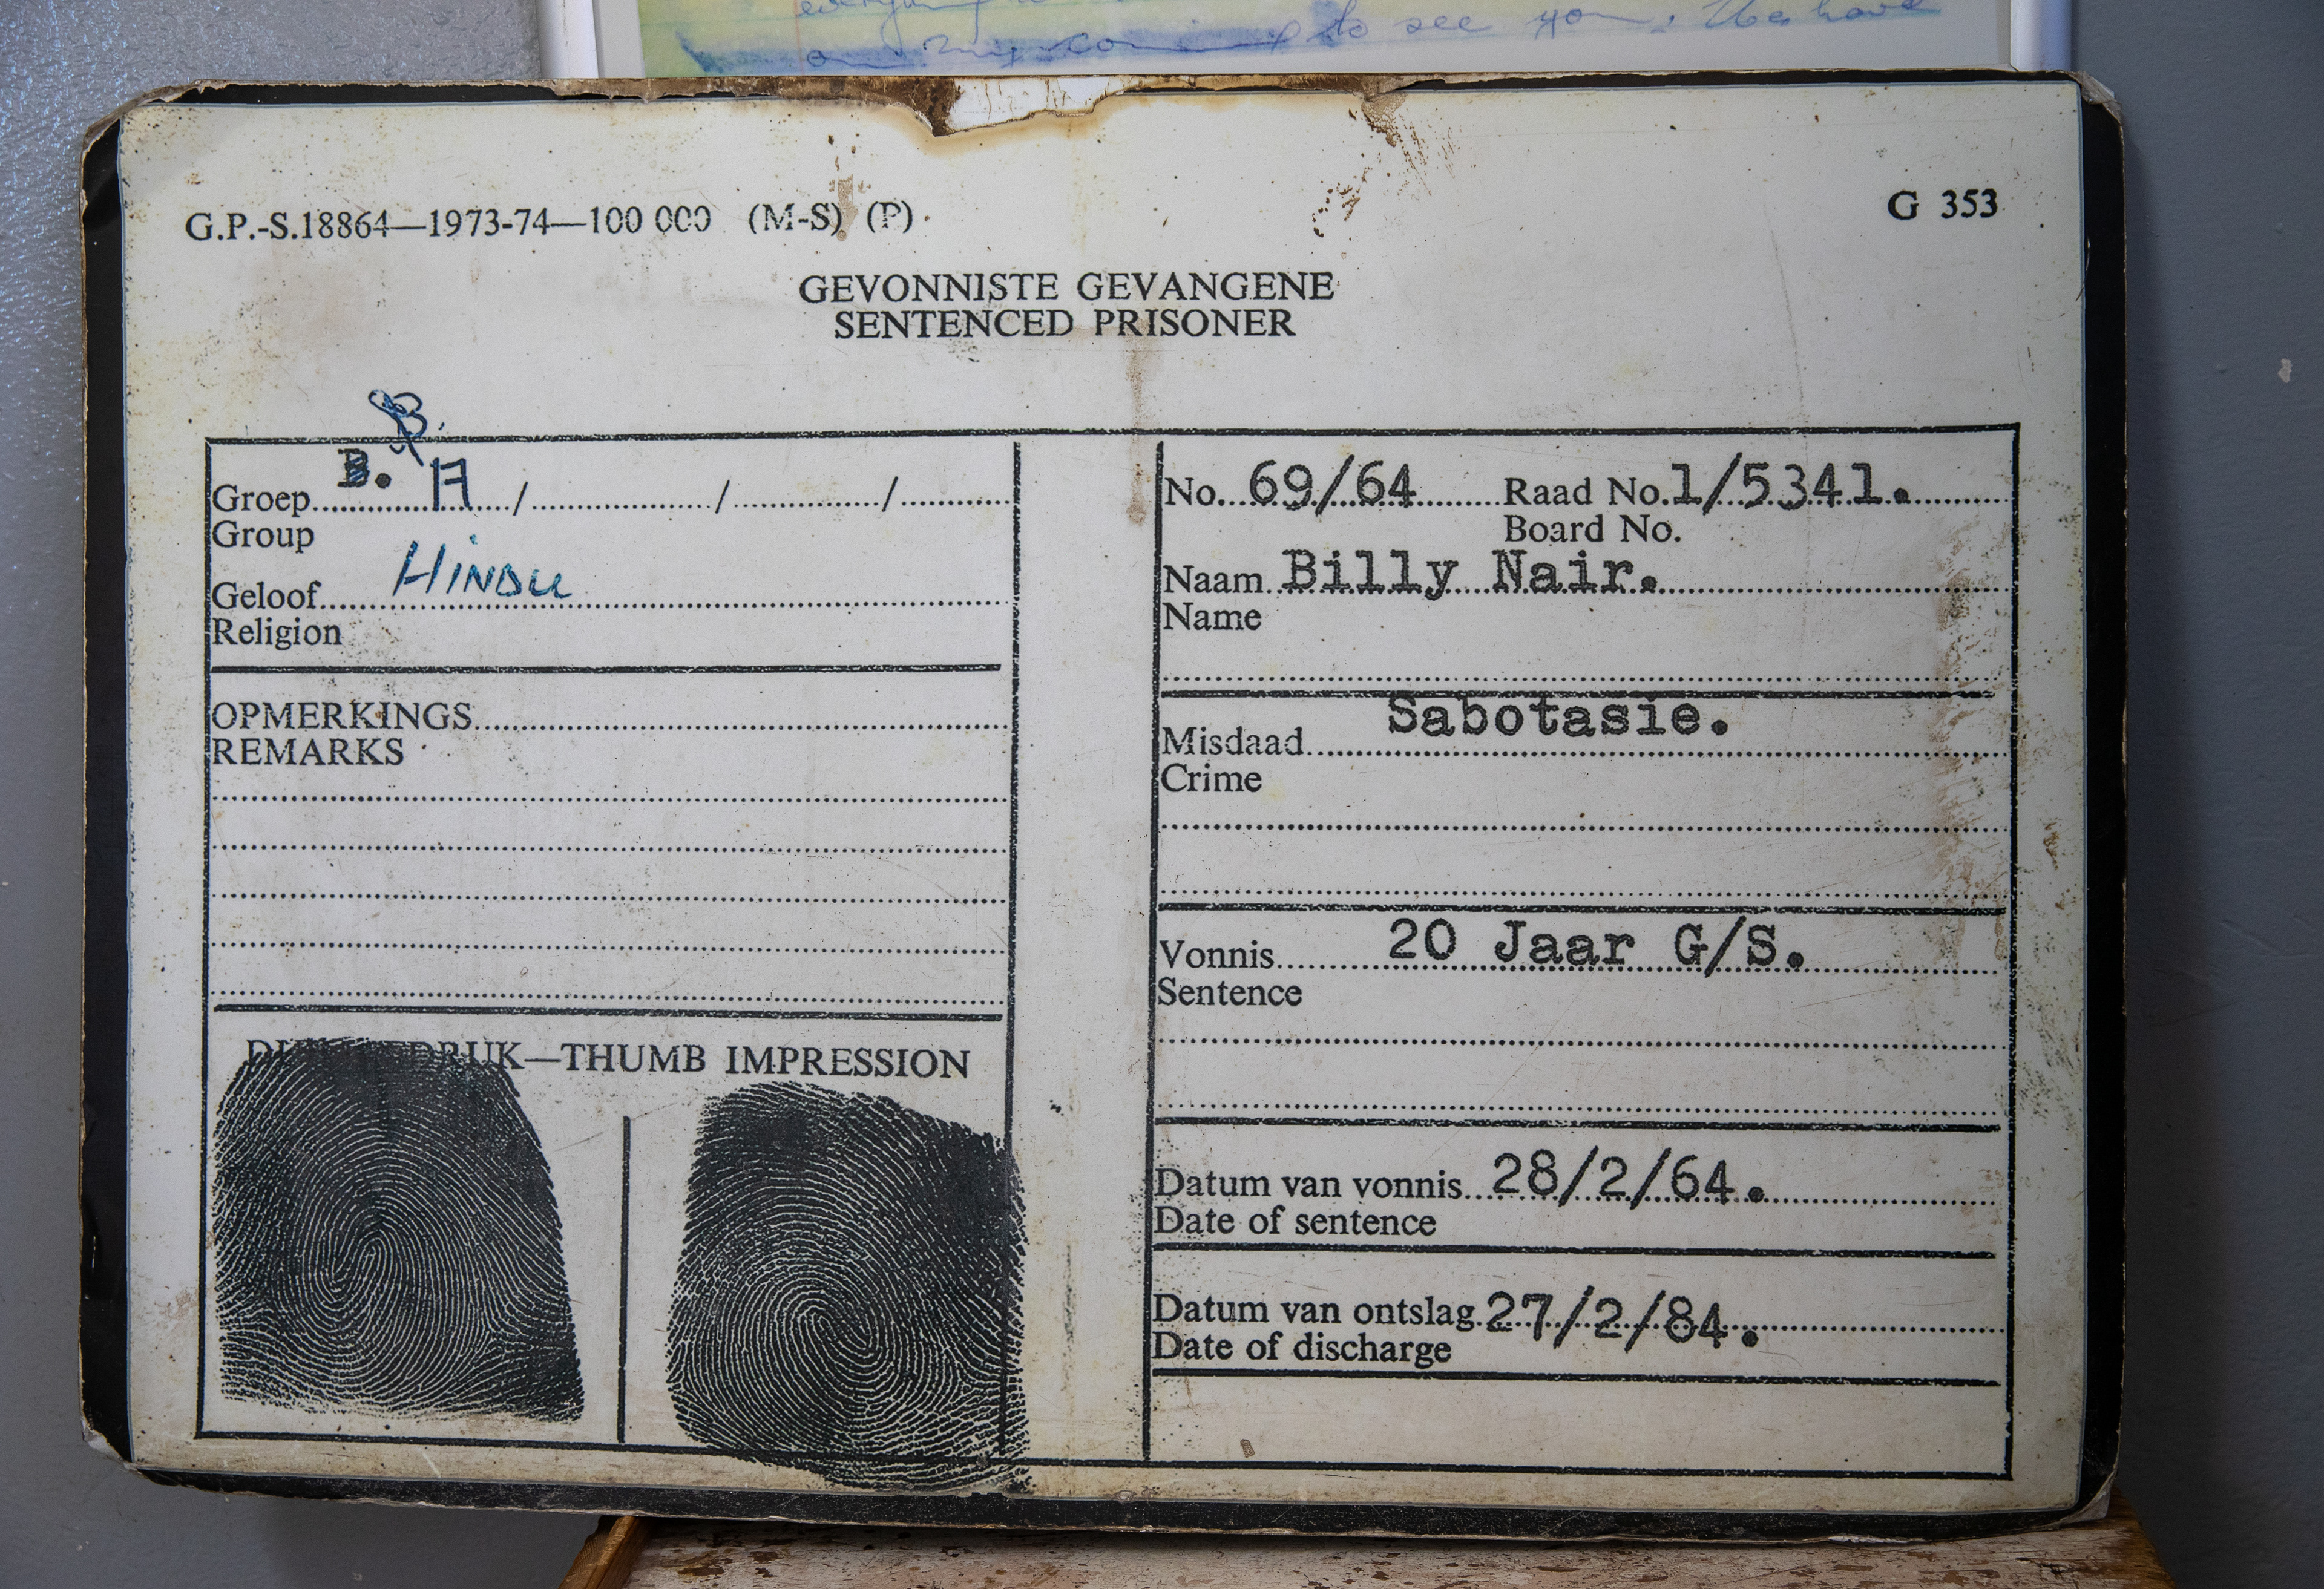 to see you. We have
G.P.-S.18864—1973-74—100 000 (M-S) (P)
G 353
GEVONNISTE GEVANGENE
SENTENCED PRISONER
B.
B. A
Groep / / /
Group
Geloof HINDU
Religion
OPMERKINGS
REMARKS
DUIMAFDRUK—THUMB IMPRESSION
No. 69/64 Raad No. 1/5341.
Board No.
Naam Billy Nair.
Name
Sabotasie.
Misdaad
Crime
Vonnis 20 Jaar G/S.
Sentence
Datum van vonnis 28/2/64.
Date of sentence
Datum van ontslag 27/2/84.
Date of discharge